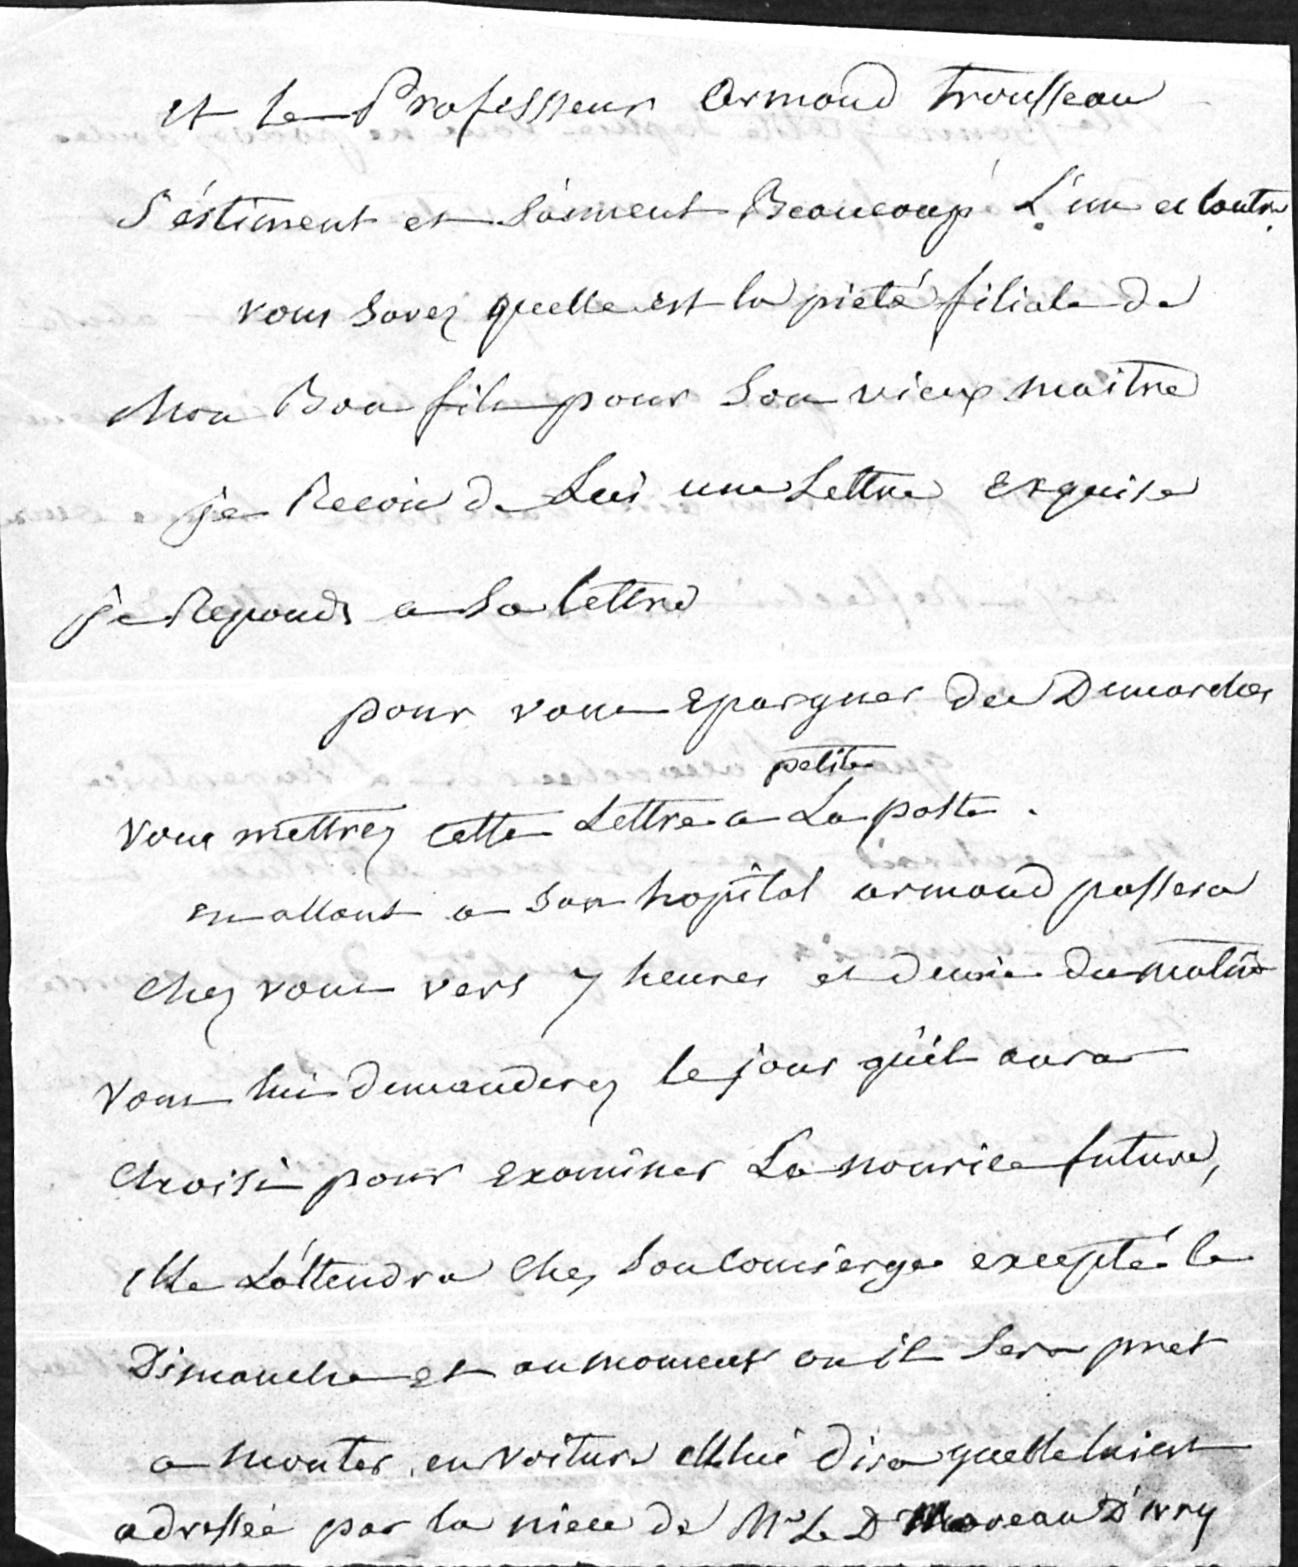 et le Professeur Armand Trousseau
S'éstiment et S'aiment Beaucoup L'un et Lautre.
vous Savez quelle est la pieté filiale de
Mon Bon fils pour Son vieux maître
je Recois de Lui une Lettre Exquise
je Reponds a Sa lettre
pour vous Epargner des Demarches
petite
vous mettrez cette Lettre a La poste.
en allant a Son hopital armand passera
chez vous vers 7 heures et demie du matin
vous lui demanderez le jour qu'il aura
choisi pour Examiner La nourice future,
Elle L'attendra chez Son Concierge excepté le
Dimanche et au moment ou il Sera pret
a monter en voiture Elle lui dira quelle lui est
adressée par la niece de Mr Le Dr Moreau D'ivry